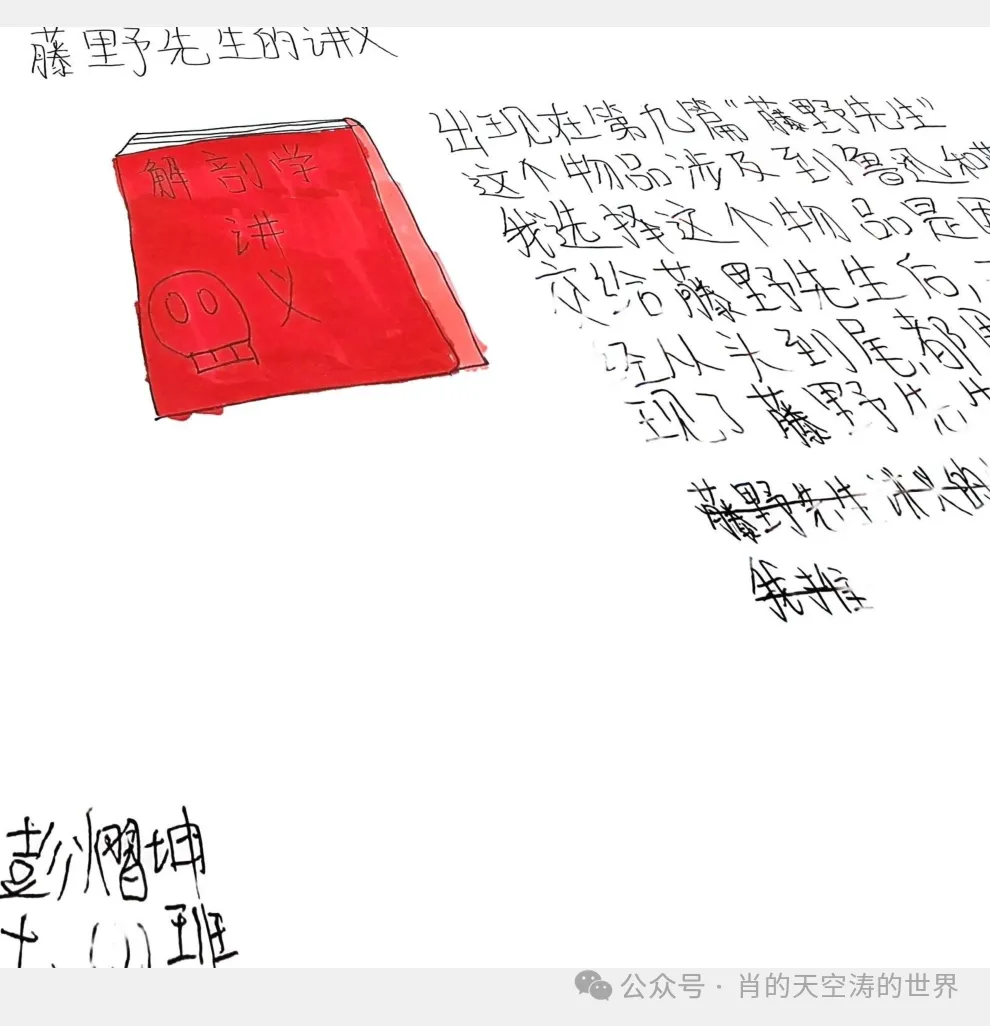 藤野先生的讲义
解剖学
讲
义
出现在第九篇"藤野先生"
这个物品涉及到鲁迅和
我选择这个物品是因
交给藤野先生后，
经从头到尾都用
现了藤野先生
藤野先生讲义的
我推
彭熠坤
七、(1)班
公众号 · 肖的天空涛的世界